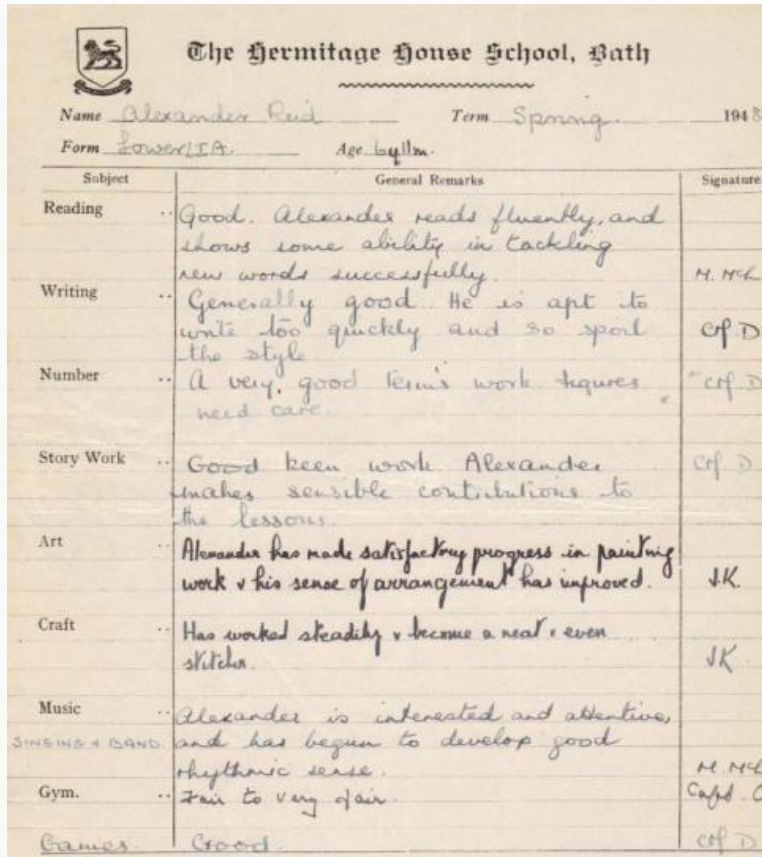 The Hermitage House School, Bath
Name Alexander Reid Term Spring 1948
Form Lower IA. Age 6y11m.
Subject General Remarks Signature
Reading .. Good. Alexander reads fluently, and
shows some ability in tackling
new words successfully. M. McL
Writing .. Generally good. He is apt to
write too quickly and so spoil
the style D
Number .. A very good term's work figures
need care. D
Story Work .. Good keen work Alexander
makes sensible contributions to
the lessons. D
Art .. Alexander has made satisfactory progress in painting
work & his sense of arrangement has improved. J.K.
Craft .. Has worked steadily & become a neat & even
stitcher. JK
Music .. Alexander is interested and attentive,
SINGING & BAND and has begun to develop good
rhythmic sense. M. McL
Gym. .. Fair to very fair. Capt.
Games Good. D